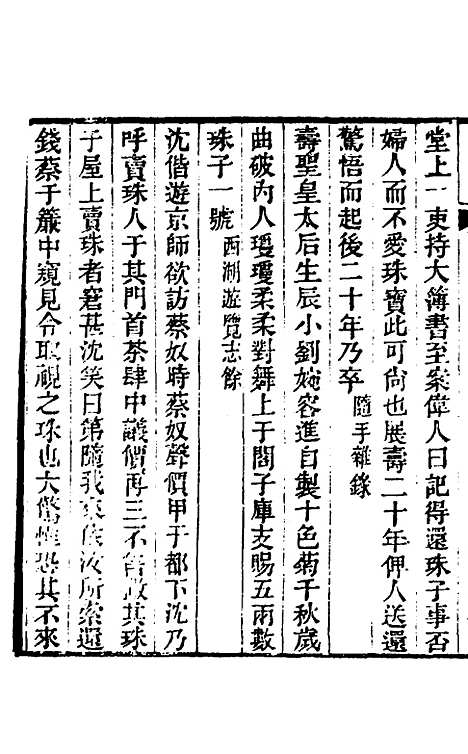 堂上一吏持大簿書至案偉人曰記得還珠子事否
婦人而不愛珠寶此可尚也展壽二十年俾人送還
驚悟而起後二十年乃卒隨手雜錄
壽聖皇太后生辰小劉婉容進自製十色菊千秋歲
曲破內人瓊瓊柔柔對舞上于閣子庫支賜五兩數
珠子一號西湖遊覽志餘
沈偕遊京師欲訪蔡奴時蔡奴聲價甲于都下沈乃
呼賣珠人于其門首茶肆中議價再三不售撒其珠
于屋上賣珠者窘甚沈笑曰第隨我來依汝所索還
錢蔡于簾中窺見令取視之珠也大驚惟恐其不來